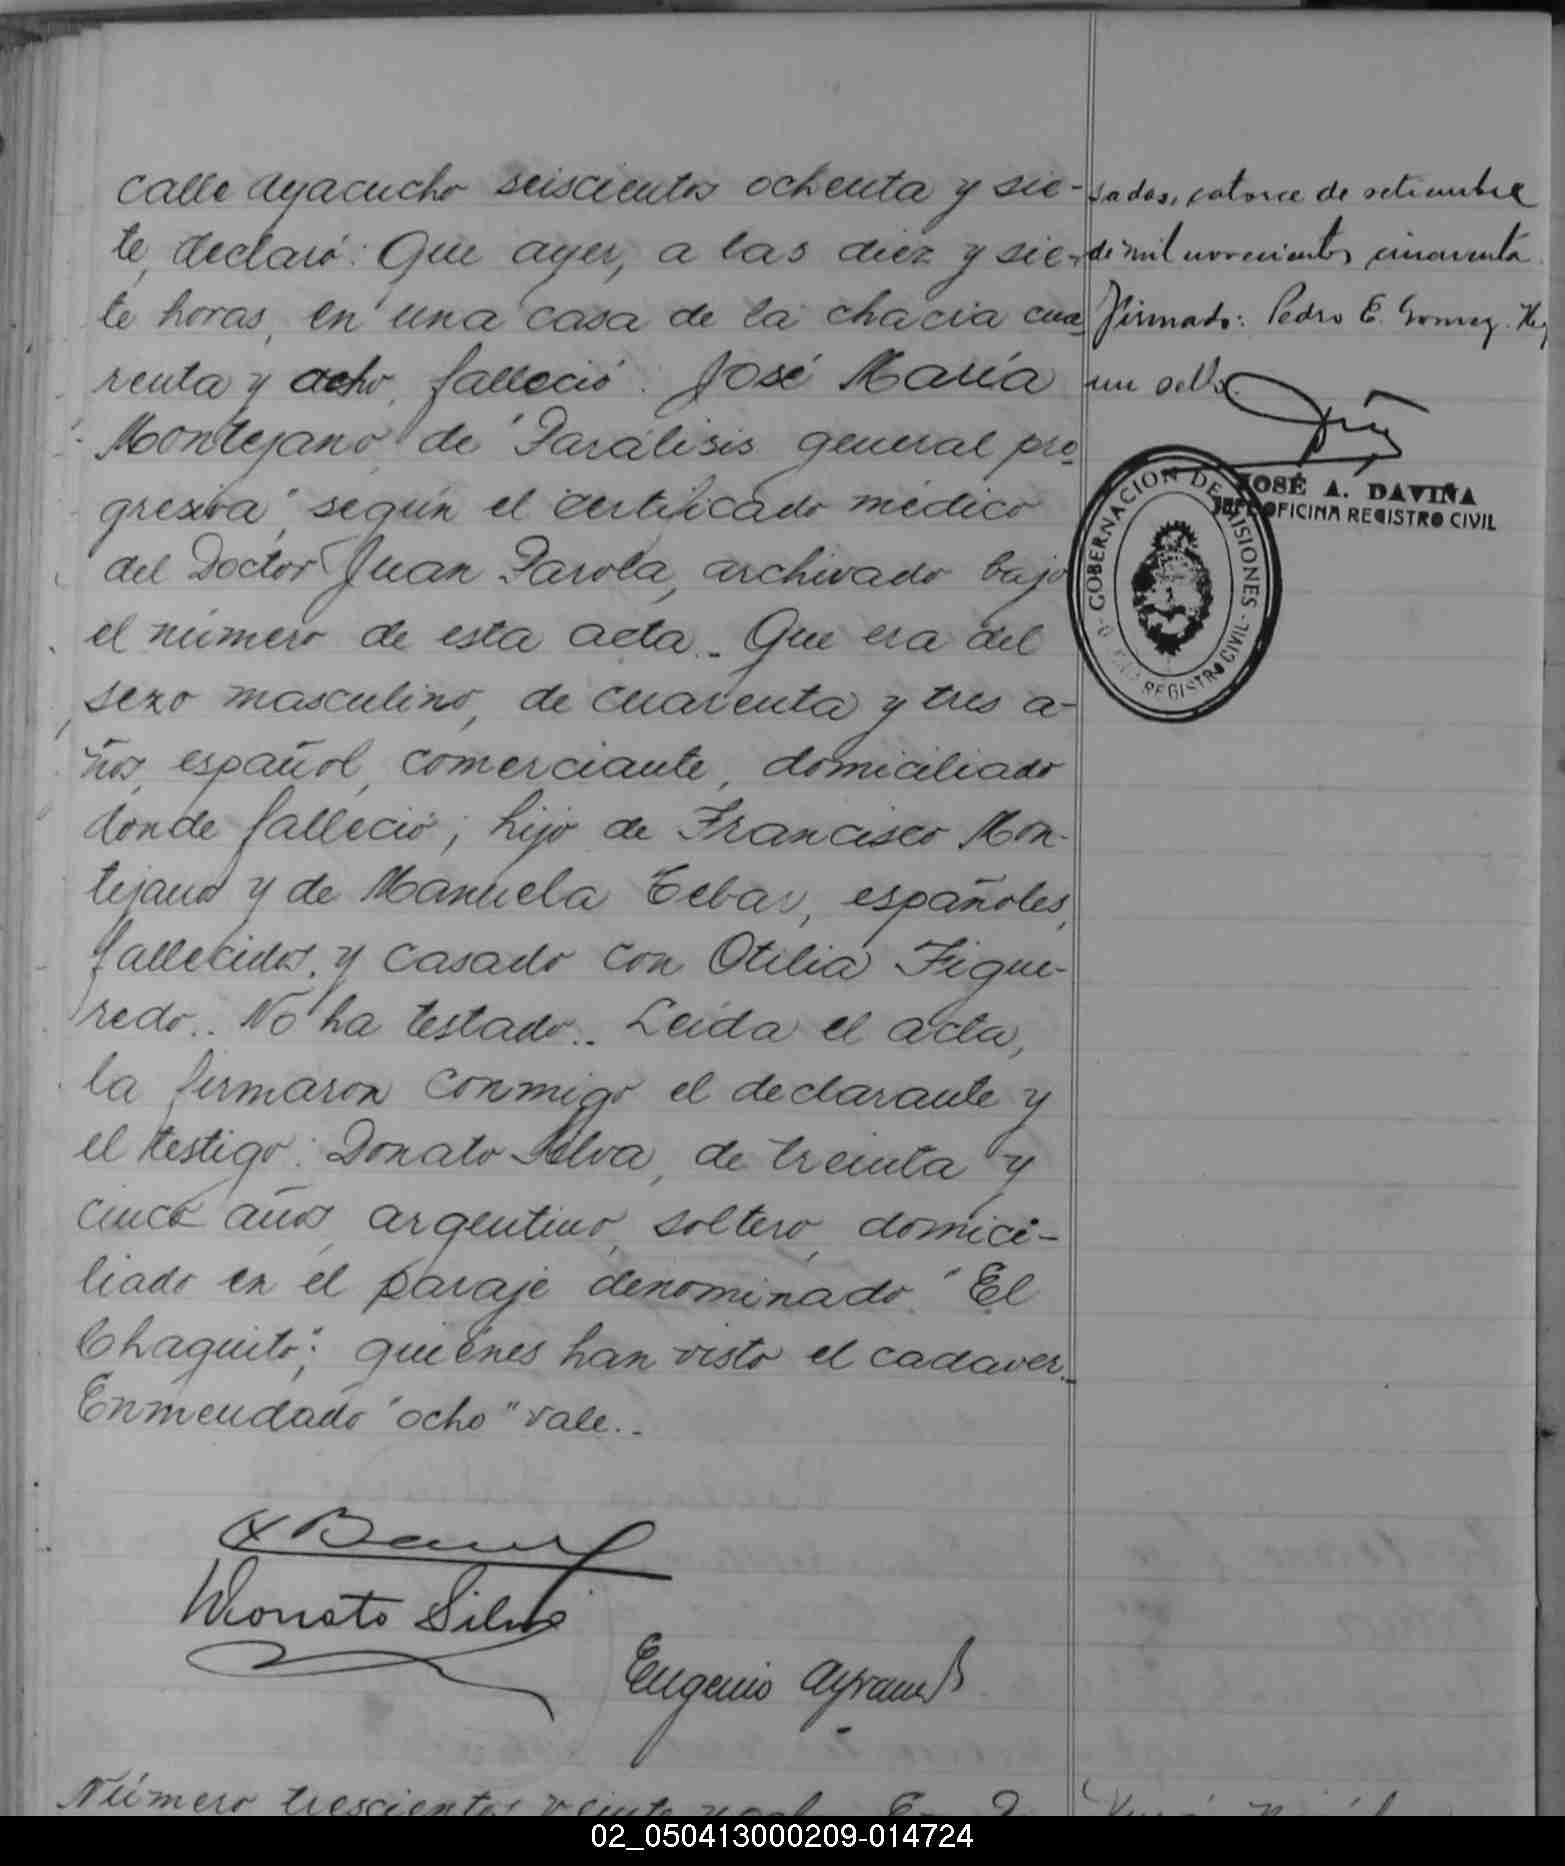 calle Ayacucho seiscientos ochenta y sie-
te, declaró: Que ayer, a las diez y sie-
te horas, en una casa de la chacra cua
renta y ocho, falleció: José María
Montejano de "Parálisis general pro
gresiva", según el certificado médico
del Doctor Juan Parola, archivado bajo
el número de esta acta.. Que era del
sexo masculino, de cuarenta y tres a-
ños, español, comerciante, domiciliado
donde falleció; hijo de Francisco Mon-
tejano y de Manuela Tebar, españoles,
fallecidos, y casado con Otilia Figue-
redo.. No ha testado.. Leída el acta,
la firmaron conmigo el declarante y
el testigo: Donato Silva, de treinta y
cinco años, argentino, soltero, domici-
liado en el paraje denominado "El
Chaquito"; quienes han visto el cadaver..
Enmendado "ocho" vale..
Donato Silva
Eugenio
Número trescientos veinte
sados, catorce de setiembre
de mil novecientos cincuenta.
Firmado: Pedro E. Gomez. Hay
un sello.
JOSÉ A. DAVIÑA
JEFE OFICINA REGISTRO CIVIL
GOBERNACION DE MISIONES
REGISTRO CIVIL
02_050413000209-014724